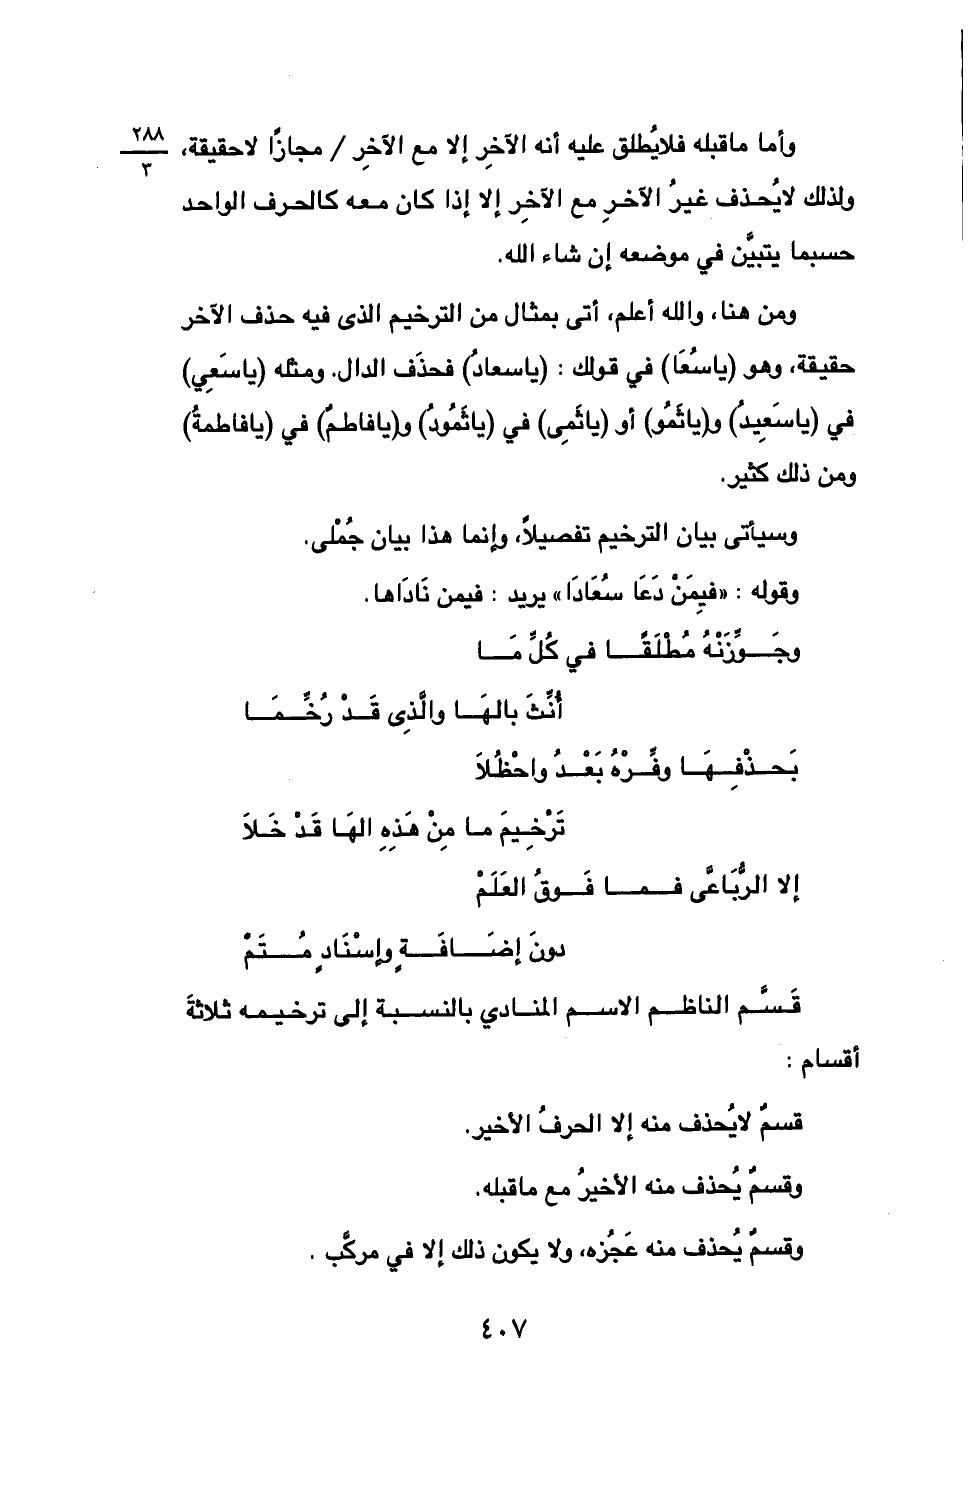 وأما ماقبله فلايُطلق عليه أنه الآخِر إلا مع الآخِر / مجازًا لاحقيقة،
٢٨٨
٣
ولذلك لايُحذف غيرُ الآخرِ مع الآخِر إلا إذا كان معه كالحرف الواحد
حسبما يتبيَّن في موضعه إن شاء الله.
ومن هنا، والله أعلم، أتى بمثال من الترخيم الذى فيه حذف الآخر
حقيقة، وهو (ياسُعَا) في قولك : (ياسعادُ) فحذَف الدال. ومثله (ياسَعِي)
في (ياسَعِيدُ) و(ياثَمُو) أو (ياثَمِى) في (ياثَمُودُ) و(يافاطمُ) في (يافاطمةُ)
ومن ذلك كثير.
وسيأتى بيان الترخيم تفصيلاً، وإنما هذا بيان جُمْلى.
وقوله : «فيِمَنْ دَعَا سُعَادَا» يريد : فيمن نَادَاها.
وجَـــوِّزَنْهُ مُطْلَقًـــا فـي كُلِّ مَـــا
أُنِّثَ بالهَـا والَّذِى قَـدْ رُخِّـمَـا
بَحـذْفِـهَـا وفِّـرْهُ بَعْـدُ واحْظُلاَ
تَرْخِيمَ مـا مِنْ هَذِهِ الهَا قَدْ خَـلاَ
إلا الرُّبَاعَّى فـمـا فَـوقُ العَلَمْ
دونَ إضَـافَـةٍ وإسْنَادٍ مُـتَمْ
قَسَّم الناظم الاسم المنادي بالنسبة إلى ترخيمه ثلاثةَ
أقسام :
قسمٌ لايُحذف منه إلا الحرفُ الأخير.
وقسمٌ يُحذف منه الأخيرُ مع ماقبله.
وقسمٌ يُحذف منه عَجُزه، ولا يكون ذلك إلا في مركَّب .
٤٠٧